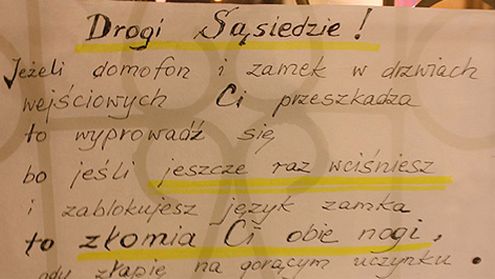 Drogi Sąsiedzie!
Jeżeli domofon i zamek w drzwiach
wejściowych Ci przeszkadza
to wyprowadź się,
bo jeśli jeszcze raz wciśniesz
i zablokujesz język zamka
to złomia Ci obie nogi,
gdy złapię na gorącym uczynku.